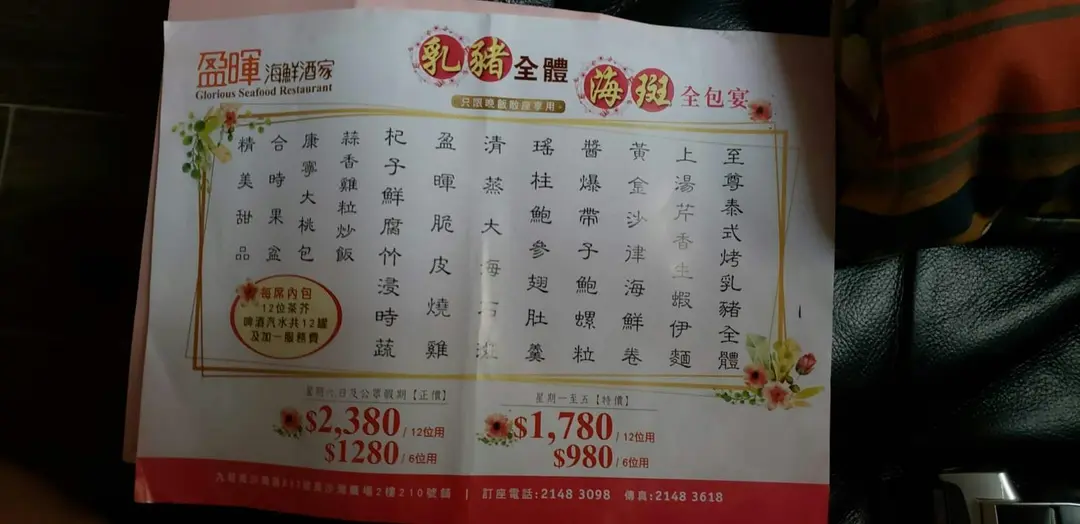 盈暉 海鮮酒家
Glorious Seafood Restaurant
乳豬全體
海斑全包宴
只限晚飯散座享用。
至尊泰式烤乳豬全體
上湯芹香生蝦伊麵
黃金沙律海鮮卷
醬爆帶子鮑螺粒
瑤柱鮑參翅肚羹
清蒸大海石斑
盈暉脆皮燒雞
杞子鮮腐竹浸時蔬
蒜香雞粒炒飯
康寧大桃包
合時果盆
精美甜品
每席內包
12位茶芥
啤酒汽水共12罐
及加一服務費
星期六日及公眾假期【正價】
$2,380 / 12位用
$1280 / 6位用
星期一至五【特價】
$1,780 / 12位用
$980 / 6位用
廣場2樓210號舖 | 訂座電話:2148 3098 傳真:2148 3618